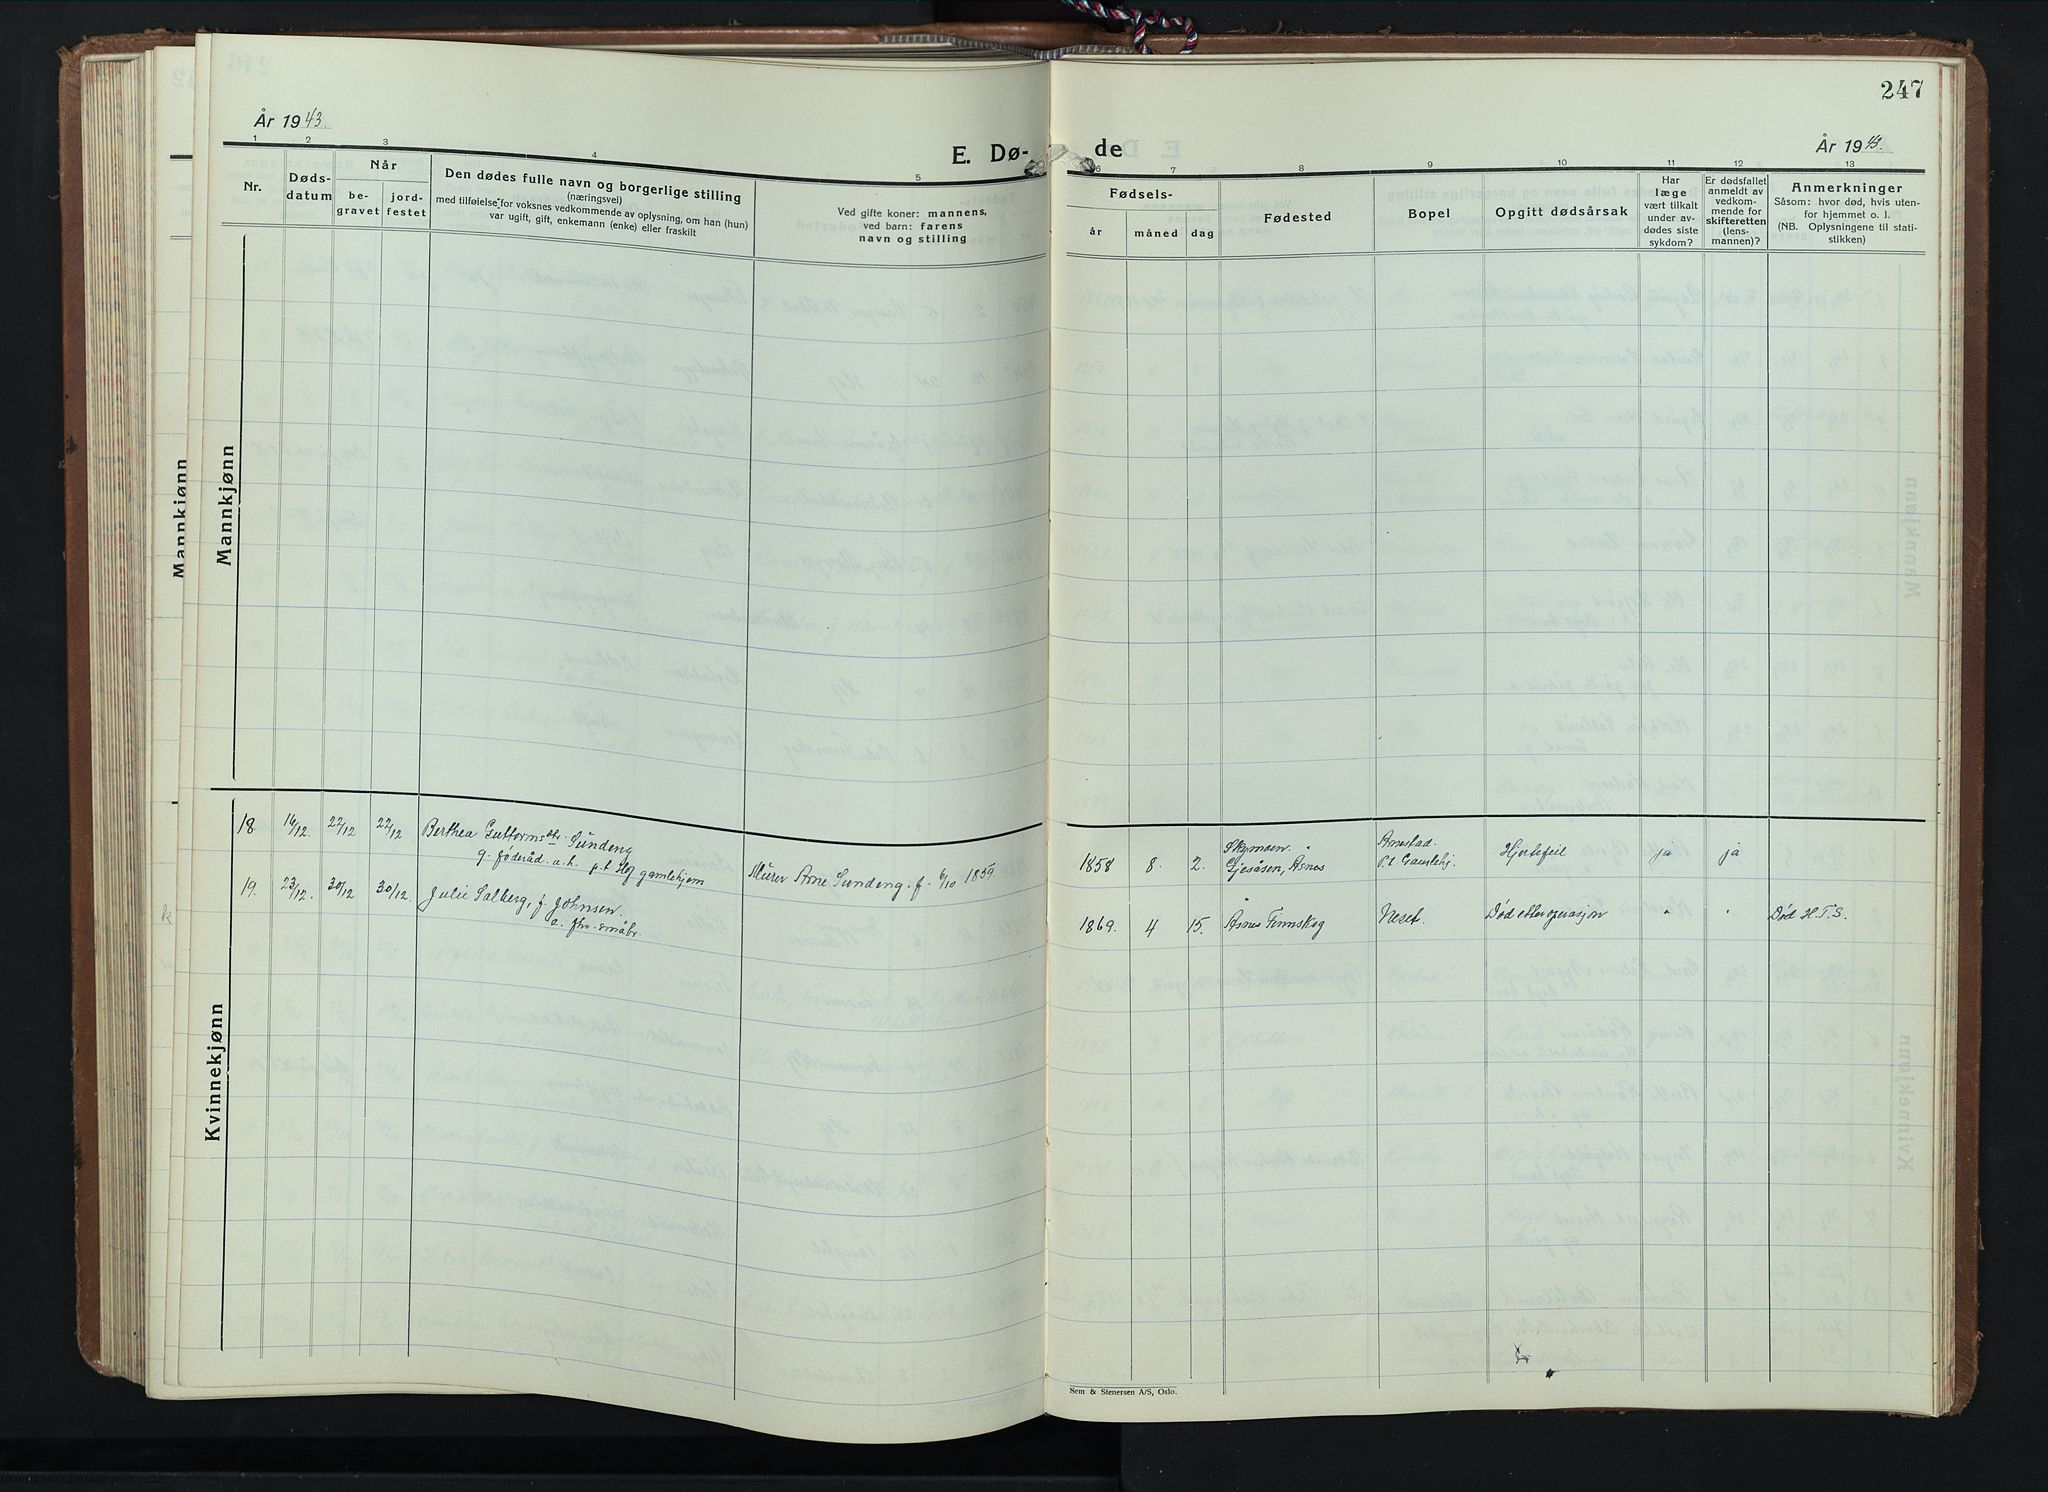 247
År 1943.
E. Dø-
de
År 1943.
1 2 3 4 5 6 7 8 9 10 11 12 13
Nr.
Døds-
datum
Når
be-
gravet
jord-
festet
Den dødes fulle navn og borgerlige stilling
(næringsvei)
med tilføielse for voksnes vedkommende av oplysning, om han (hun)
var ugift, gift, enkemann (enke) eller fraskilt
Ved gifte koner: mannens,
ved barn: farens
navn og stilling
Fødsels-
år
måned
dag
Fødested
Bopel
Opgitt dødsårsak
Har
læge
vært tilkalt
under av-
dødes siste
sykdom?
Er dødsfallet
anmeldt av
vedkom-
mende for
skifteretten
(lens-
mannen)?
Anmerkninger
Såsom: hvor død, hvis uten-
for hjemmet o. l.
(NB. Oplysningene til stati-
stikken)
Mannkjønn
Mannkjønn
Kvinnekjønn
18 16/12. 22/12 22/12 Berthea Guttormsdtr. Sundeng
g. föderåd. a. h. p.t. Hof gamlehjem
Murer Arne Sundeng. f. 6/10 1859.
1858 8. 2. Skymoen.
Gjesåsen, Åsnes
Arnestad.
p.t. Gamlehj.
Hjertefeil ja ja
19. 23/12. 30/12 30/12. Julie Salberg, f. Johnsen.
e. fhv. småbr.
1869. 4 15. Åsnes Finnskog Neset. Død etter operasjon " " Død H.T.S.
Sem & Stenersen A/S, Oslo.